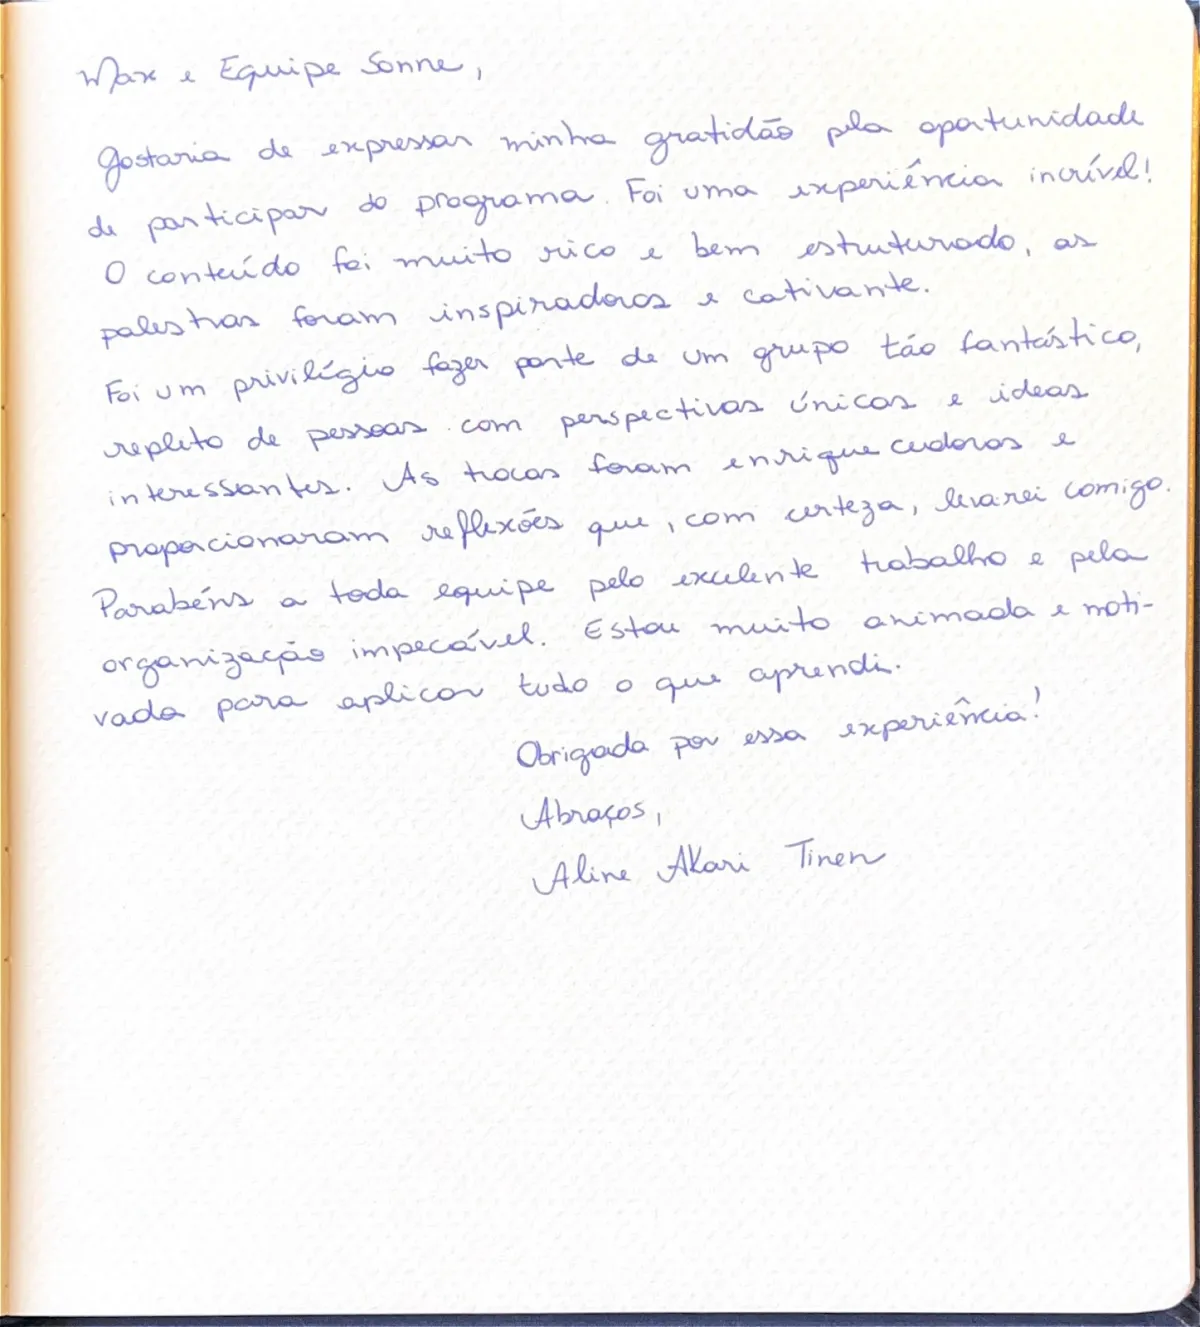 Max e Equipe Sonne,
Gostaria de expressar minha gratidão pela oportunidade
de participar do programa. Foi uma experiência incrível!
O conteúdo foi muito rico e bem estruturado, as
palestras foram inspiradoras e cativante.
Foi um privilégio fazer parte de um grupo tão fantástico,
repleto de pessoas com perspectivas únicas e ideas
interessantes. As trocas foram enriquecedoras e
proporcionaram reflexões que, com certeza, levarei comigo.
Parabéns a toda equipe pelo excelente trabalho e pela
organização impecável. Estou muito animada e moti-
vada para aplicar tudo o que aprendi.
Obrigada por essa experiência!
Abraços,
Aline Akari Tinen